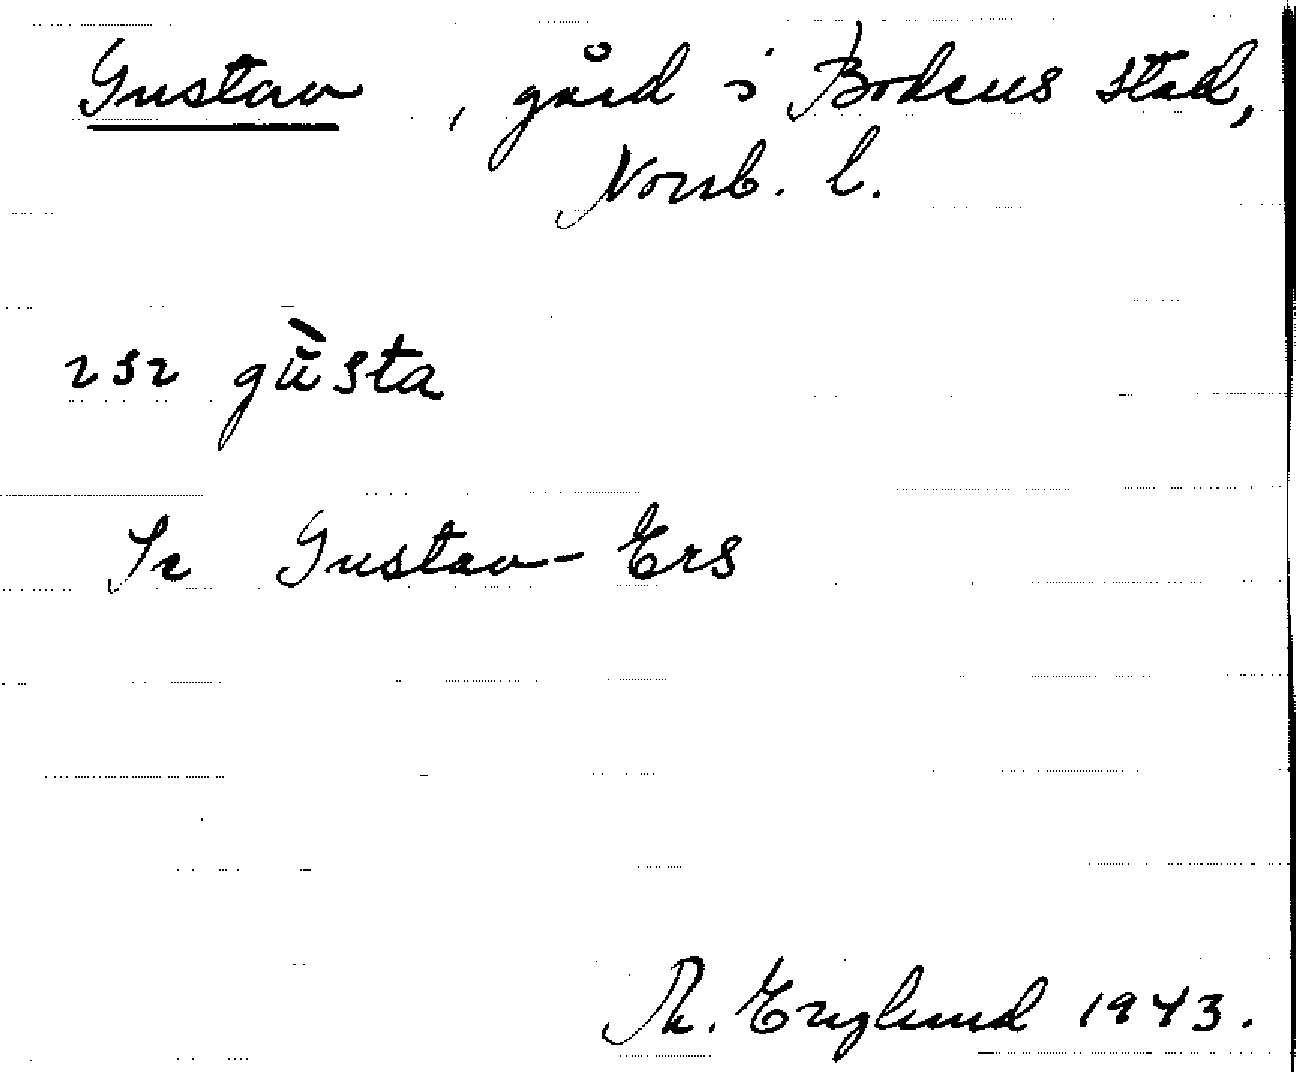 Gustav, gård i Bodens stad,
Norrb. l.
gùsta
Se Gustav-Ers
R. Englund 1943.